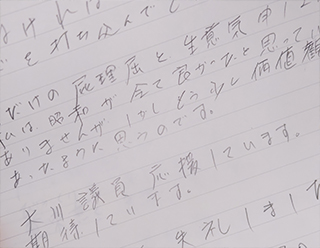 なければ
を打ち込んで
だけの屁理屈と生意気申し上
私は昭和が全て良かったと思ってい
ありませんが、しかしもう少し価値観
あったように思うのです。
大川議員 応援しています。
期待しています。
失礼しました